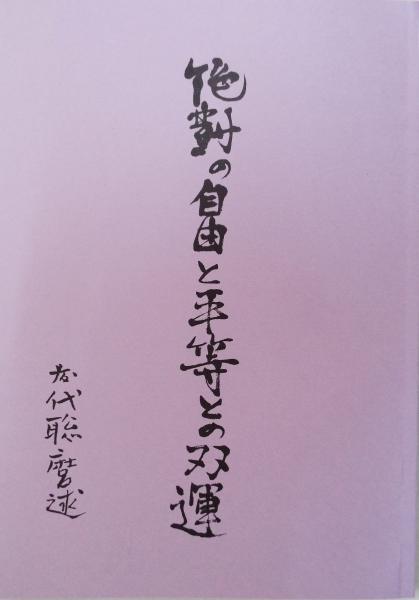 絶對の自由と平等との双運
お代聡麿述